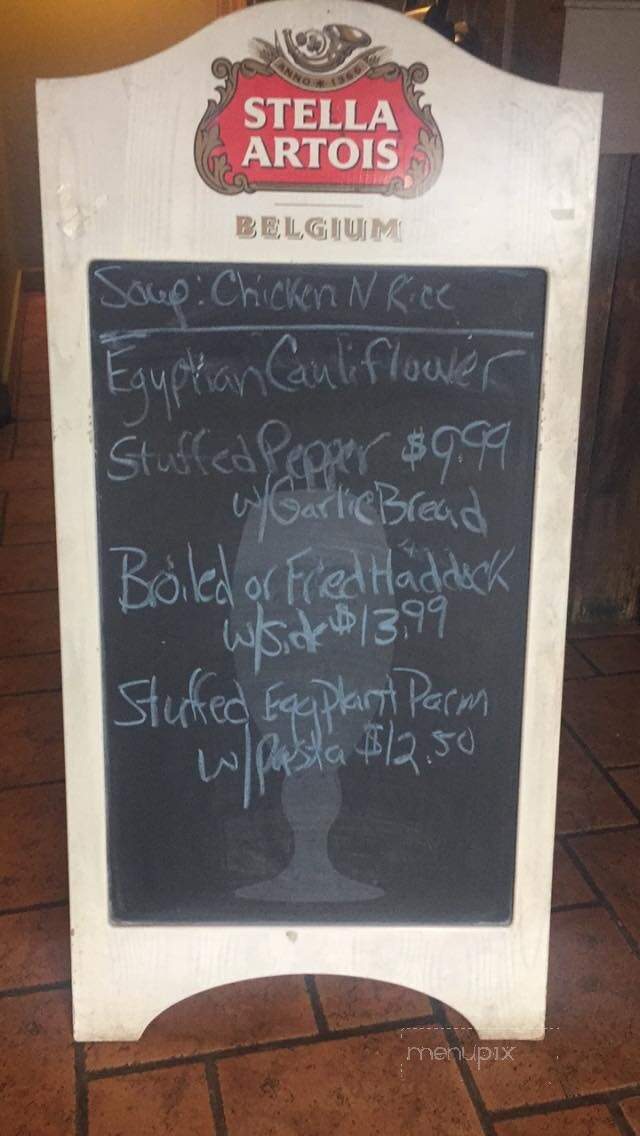 ANNO 1366
STELLA
ARTOIS
BELGIUM
Soup: Chicken N Rice
Egyptian Cauliflower
Stuffed Pepper $9.99
w/Garlic Bread
Broiled or Fried Haddock
w/Side $13.99
Stuffed EggPlant Parm
w/Pasta $12.50
menupix